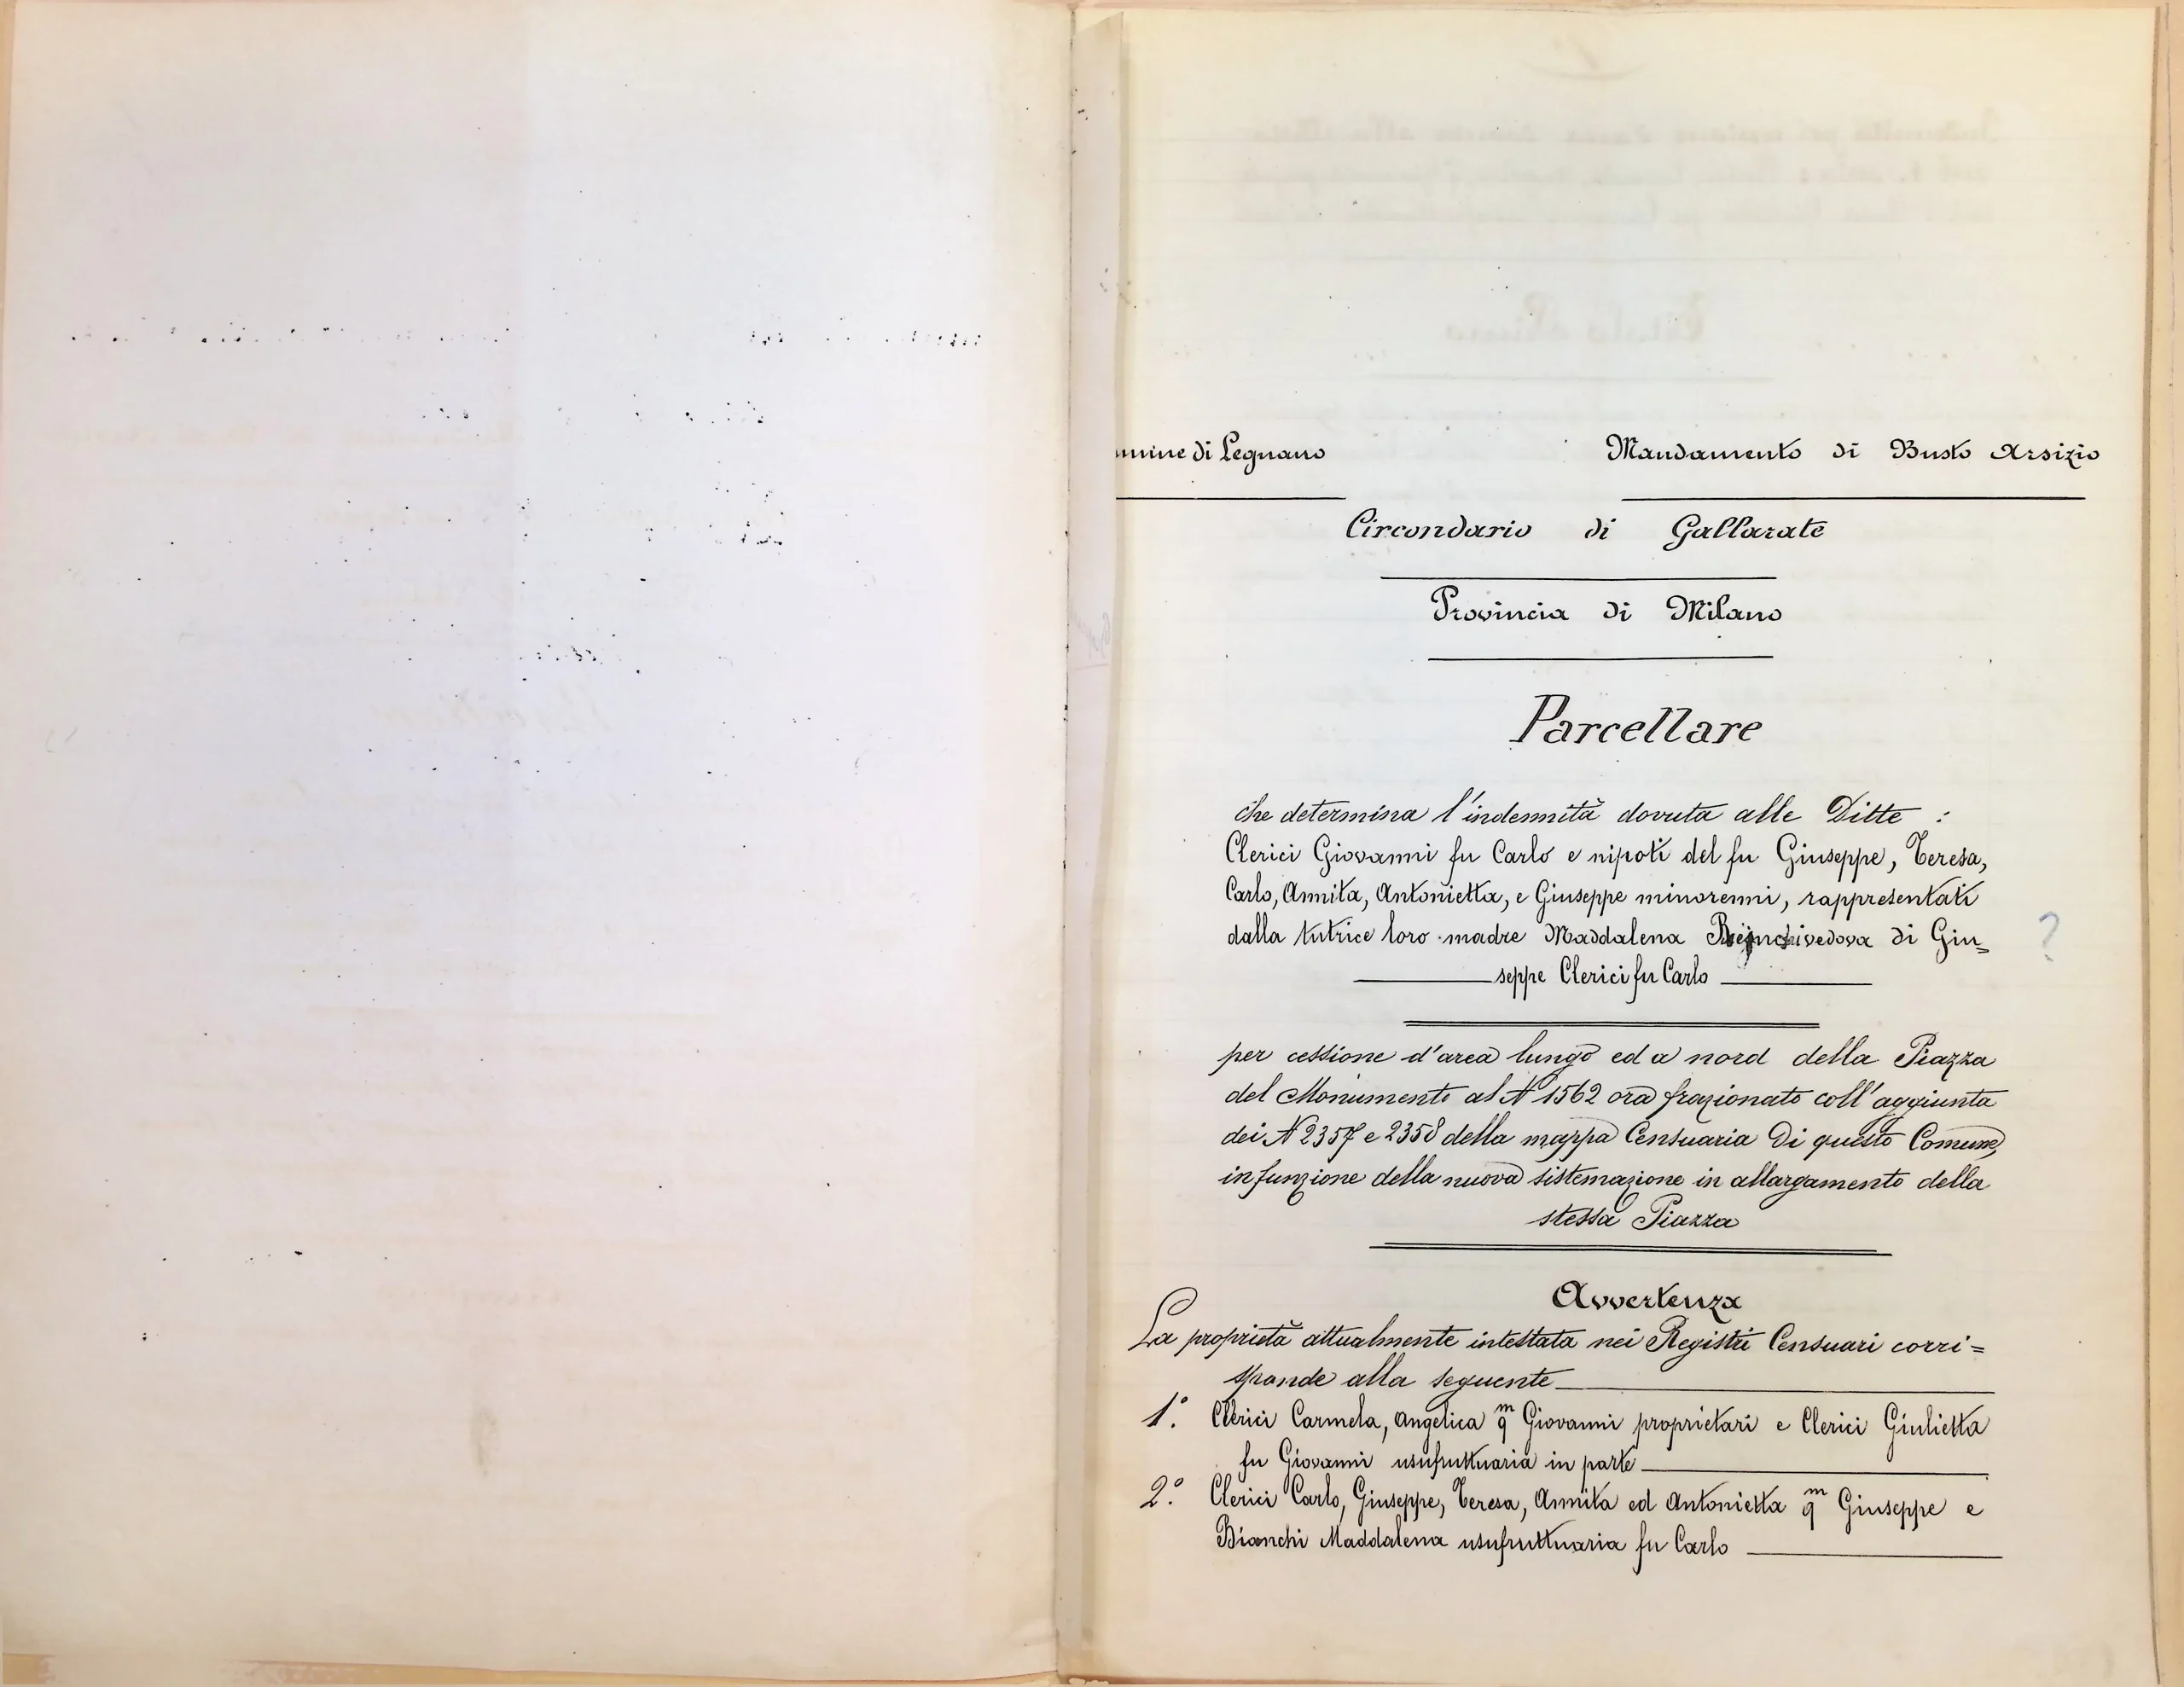 mune di Legnano
Mandamento di Busto Arsizio
Circondario di Gallarate
Provincia di Milano
Parcellare
che determina l'indennità dovuta alle Ditte :
Clerici Giovanni fu Carlo e nipoti del fu Giuseppe, Teresa,
Carlo, Annita, Antonietta, e Giuseppe minorenni, rappresentati
dalla tutrice loro madre Maddalena vedova di Giu=
seppe Clerici fu Carlo
?
per cessione d'area lungo ed a nord della Piazza
del Monumento al N 1562 ora frazionato coll'aggiunta
dei N 2357 e 2358 della mappa Censuaria di questo Comune,
in funzione della nuova sistemazione in allargamento della
stessa Piazza
Avvertenza
La proprietà attualmente intestata nei Registri Censuari corri=
sponde alla seguente
1.° Clerici Carmela, Angelica qm Giovanni proprietari e Clerici Giulietta
fu Giovanni usufruttuaria in parte
2.° Clerici Carlo, Giuseppe, Teresa, Annita ed Antonietta qm Giuseppe e
Bianchi Maddalena usufruttuaria fu Carlo